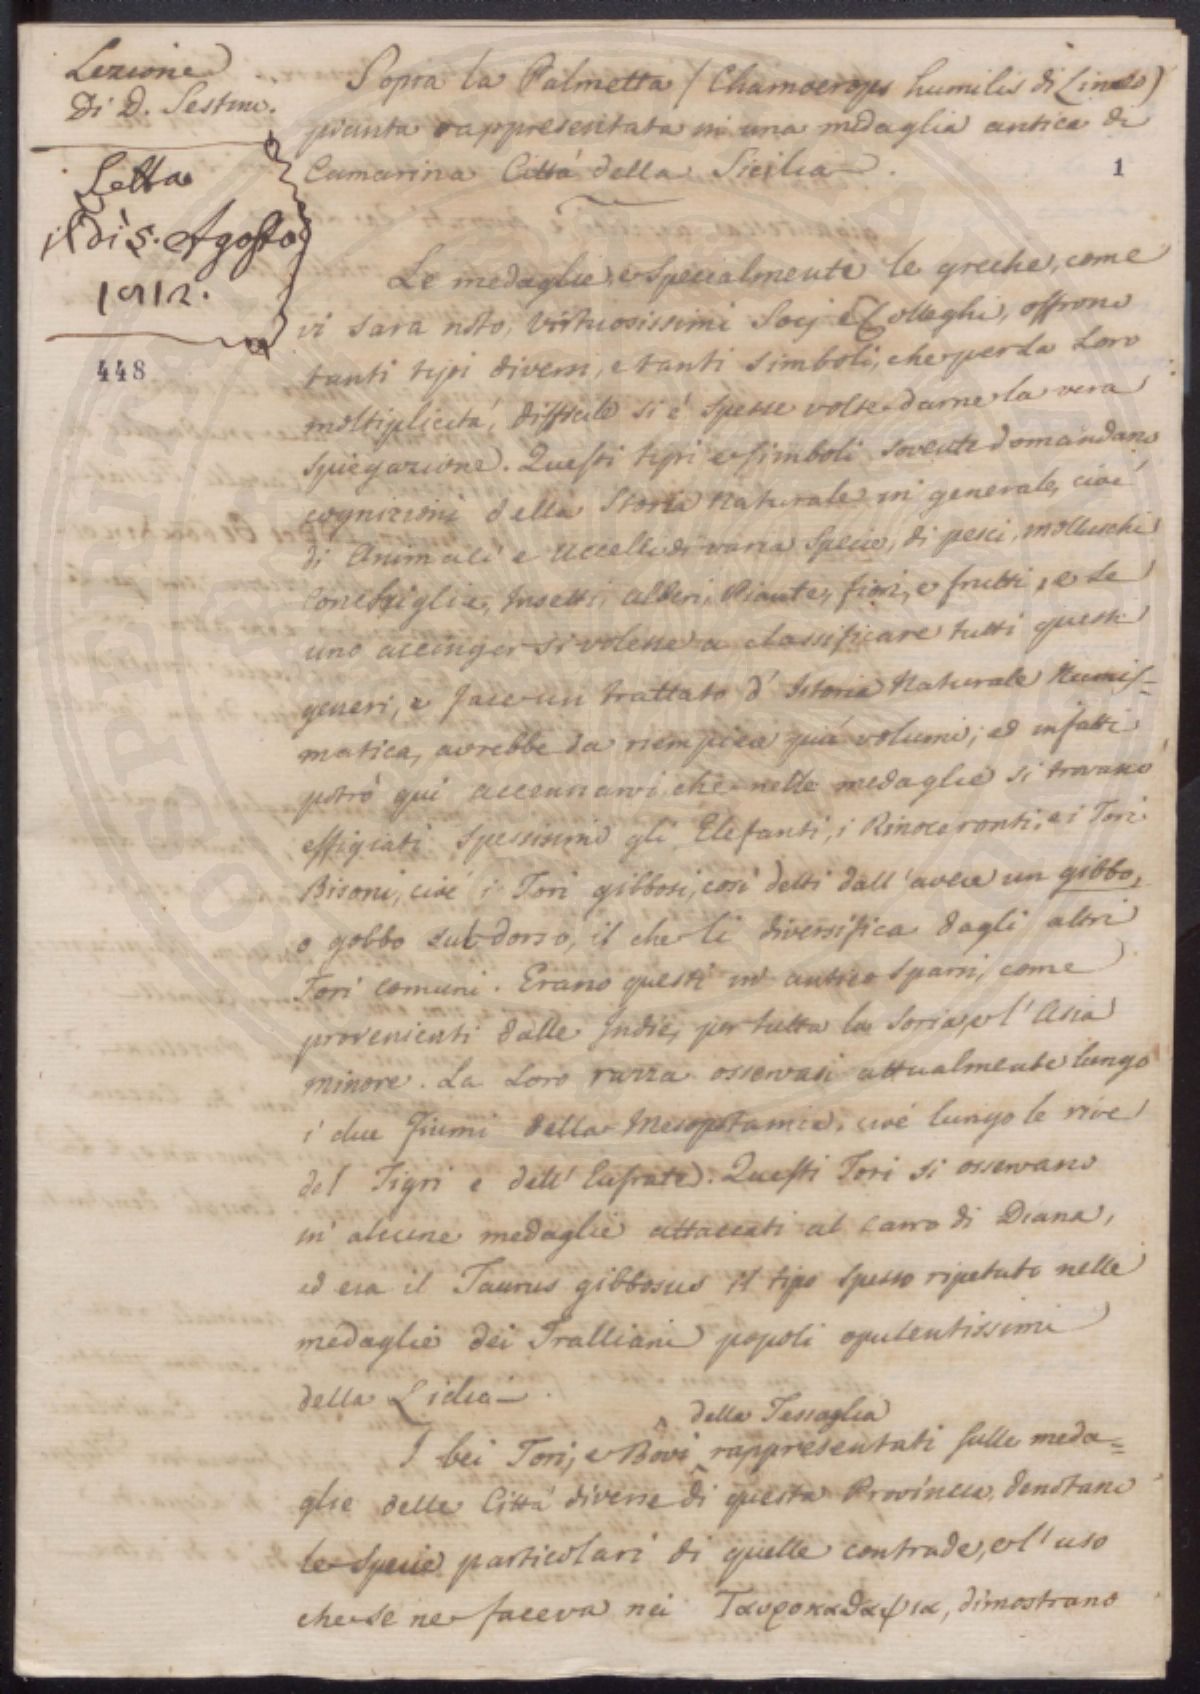 Lezione
Di D. Sestini.
Letta
il dì 5. Agosto
1812.
448
Sopra la Palmetta (Chamoerops humilis di Linneo)
pianta rappresentata in una medaglia antica di
Camarina Città della Sicilia.
1
Le medaglie, e specialmente le greche, come
vi sarà noto, virtuosissimi Socj e Colleghi, offrono
tanti tipi diversi, e tanti simboli, che per la loro
moltiplicità, difficile si è spesse volte darne la vera
spiegazione. Questi tipi e simboli sovente domandano
cognizioni della Storia Naturale in generale, cioè
di Animali e Uccelli di varia specie, di pesci, molluschi
Conchiglie, Insetti, alberi, Piante, fiori, e frutti, e se
uno accinger si volesse a classificare tutti questi
generi, e fare un trattato d' Istoria Naturale Numis-
matica, avrebbe da riempire più volumi; ed infatti
potrò qui accennarvi che nelle medaglie si trovano
effigiati spessissimo gli Elefanti, i Rinoceronti, e i Tori
Bisoni, cioè i Tori gibbosi, così detti dall' avere un gibbo,
o gobbo sul dorso, il che li diversifica dagli altri
Tori comuni. Erano questi in antico sparsi, come
provenienti dalle Indie, per tutta la Soria, e l' Asia
minore. La loro razza osservasi attualmente lungo
i due fiumi della Mesopotamia, cioè lungo le rive
del Tigri e dell' Eufrate. Questi Tori si osservano
in alcune medaglie attaccati al carro di Diana,
ed era il Taurus gibbosus il tipo spesso ripetuto nelle
medaglie dei Tralliani popoli opulentissimi
della Lidia.
della Tessaglia
I bei Tori, e Bovi rappresentati sulle meda=
glie delle Città diverse di questa Provincia, denotano
le specie particolari di quelle contrade, e l' uso
che se ne faceva nei Ταυροκαθαψια, dimostrano